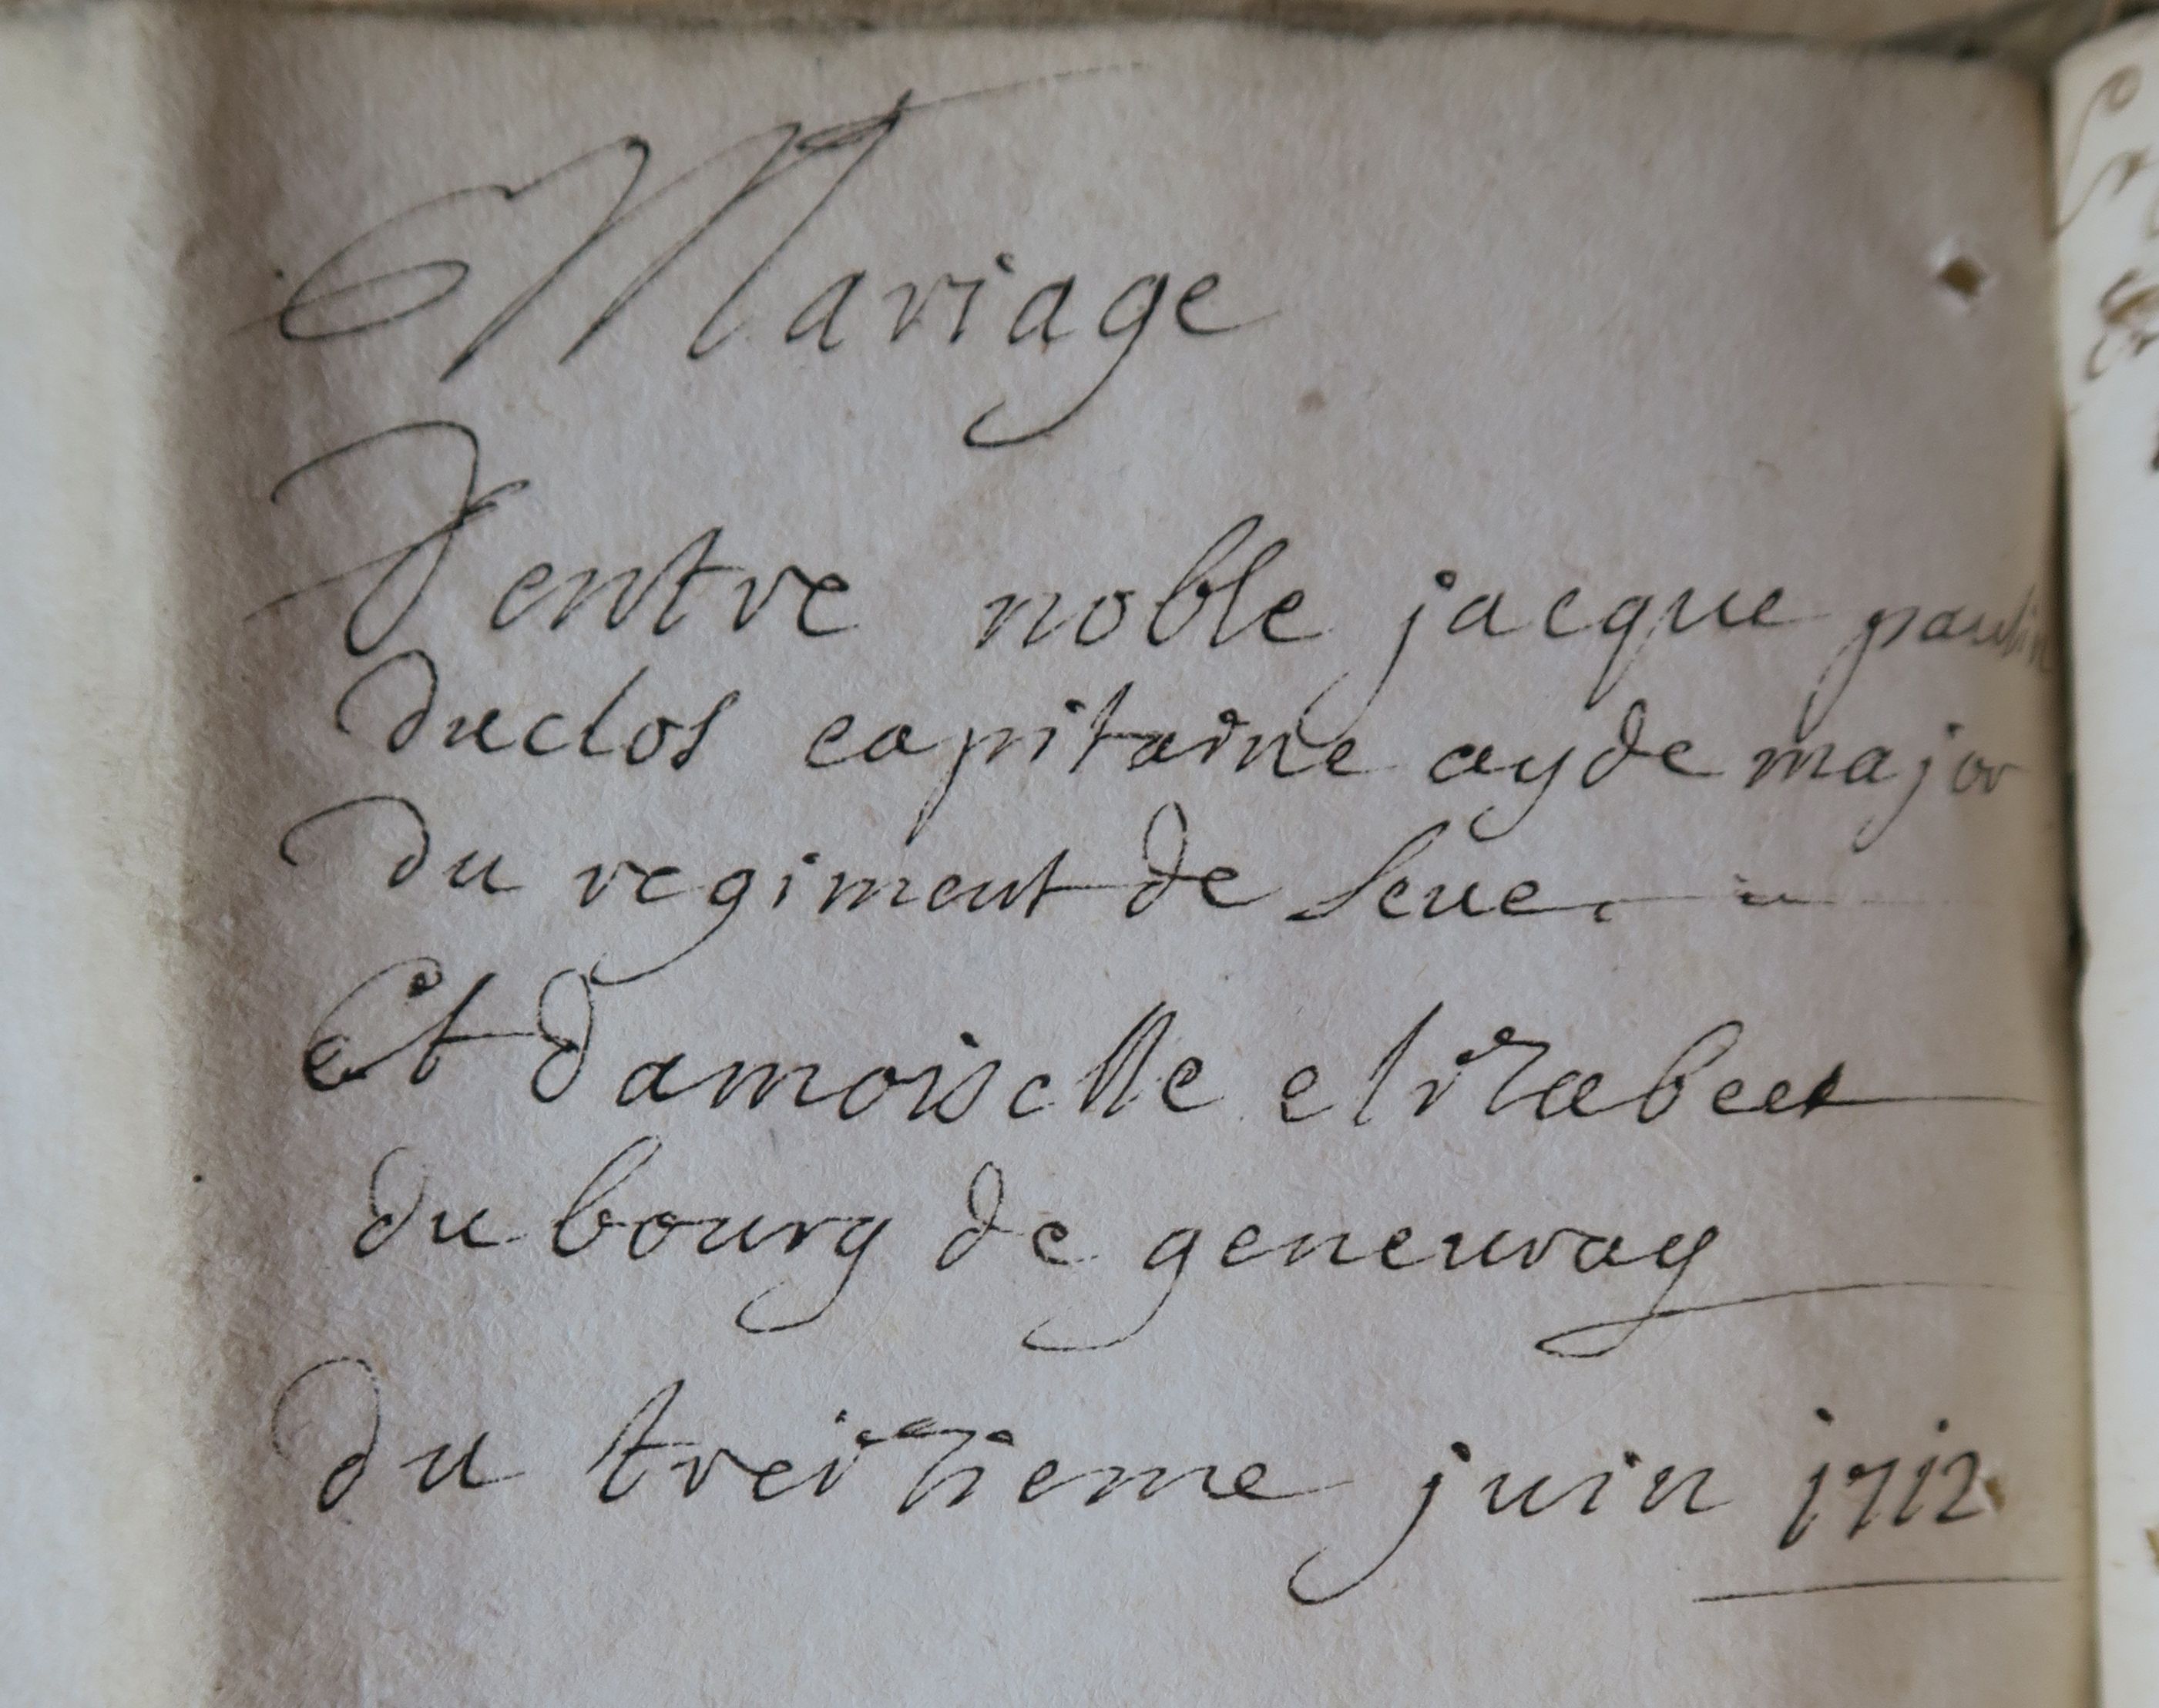 Mariage
D'entre noble jacque paulin
duclos capitaine ayde major
du regiment de Seve
Et damoiselle elizabeet
du bourg de genevray
du treizieme juin 1712